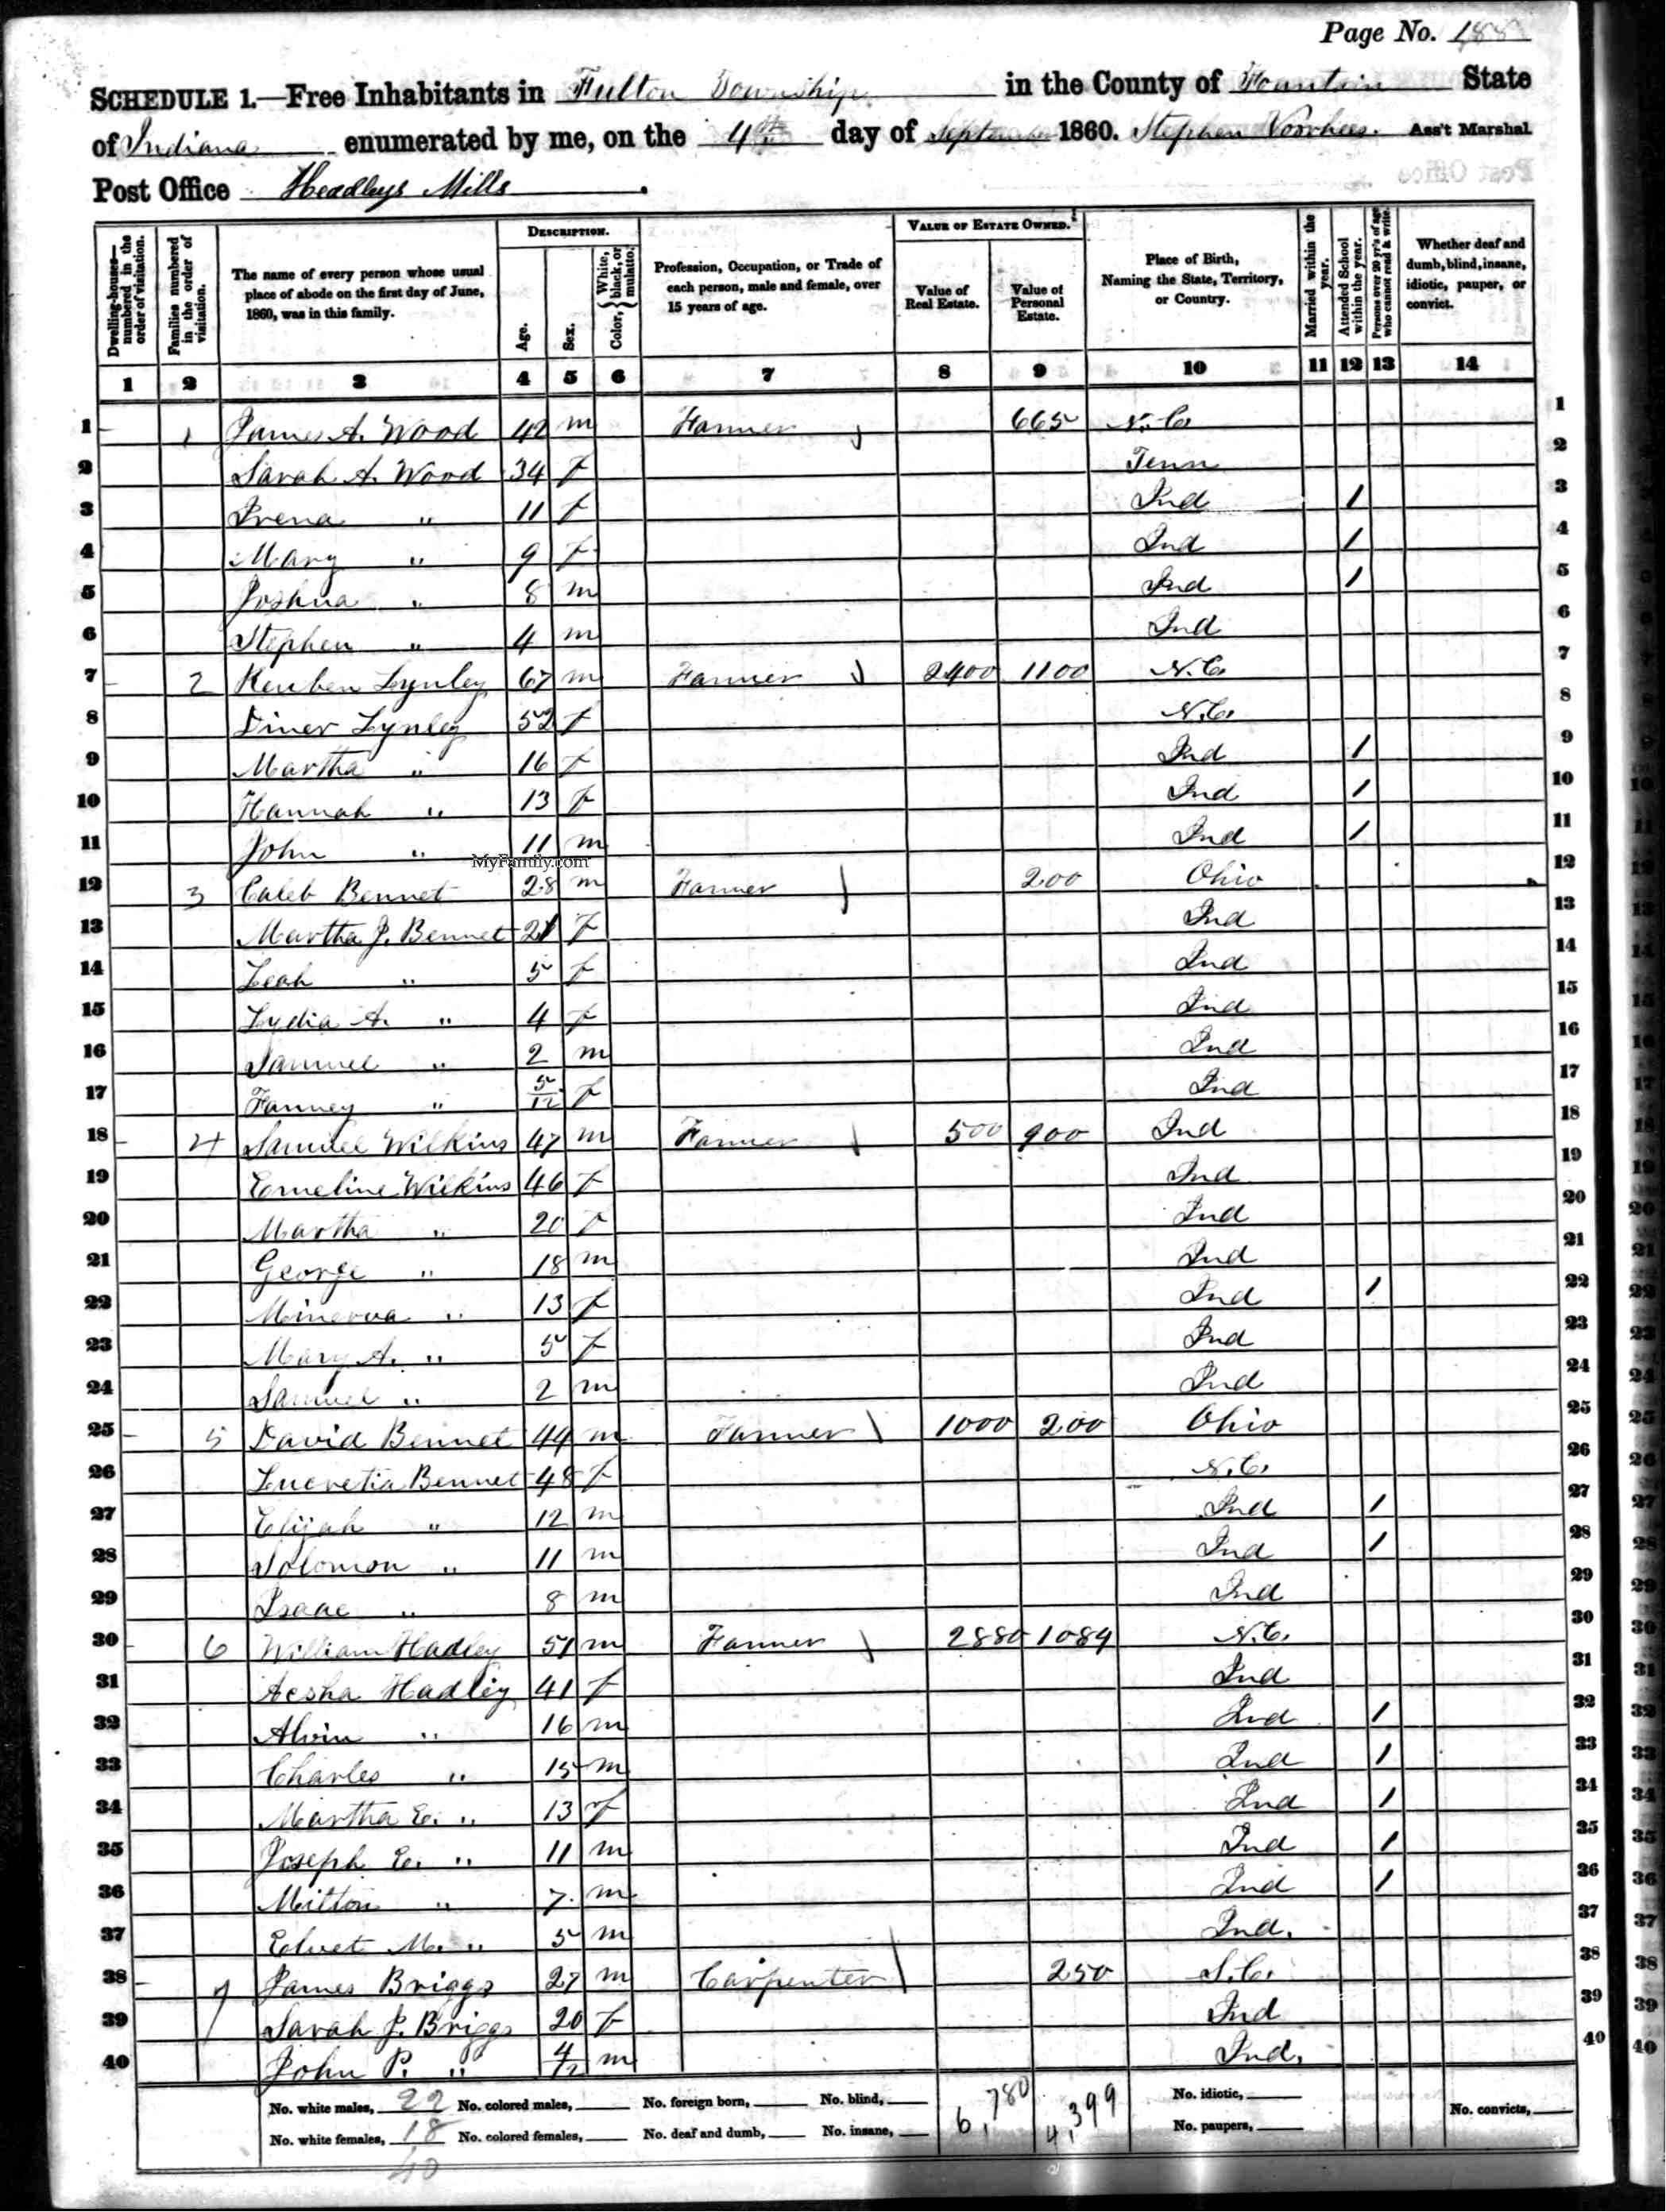 Page No. 188
SCHEDULE 1.—Free Inhabitants in Fulton Township in the County of Fountain State
of Indiana enumerated by me, on the 4th day of September 1860. Stephen Voorhees. Ass't Marshal
Post Office Headleys Mills
Dwelling-houses—numbered in the order of visitation.
Families numbered in the order of visitation.
The name of every person whose usual place of abode on the first day of June, 1860, was in this family.
DESCRIPTION.
Age.
Sex.
Color, {White, black, or mulatto.
Profession, Occupation, or Trade of each person, male and female, over 15 years of age.
VALUE OF ESTATE OWNED.
Value of Real Estate.
Value of Personal Estate.
Place of Birth, Naming the State, Territory, or Country.
Married within the year.
Attended School within the year.
Persons over 20 yr's of age who cannot read & write.
Whether deaf and dumb, blind, insane, idiotic, pauper, or convict.
1 2 3 4 5 6 7 8 9 10 11 12 13 14
1 1 James A. Wood 42 m Farmer 665 N. C. 1
2 Sarah A. Wood 34 f Tenn 2
3 Irena " 11 f Ind / 3
4 Mary " 9 f Ind / 4
5 Joshua " 8 m Ind / 5
6 Stephen " 4 m Ind 6
7 2 Reuben Lynley 67 m Farmer 2400 1100 N. C. 7
8 Diner Lynley 52 f N. C. 8
9 Martha " 16 f Ind / 9
10 Hannah " 13 f Ind / 10
11 John " 11 m Ind / 11
MyFamily.com
12 3 Caleb Bennet 28 m Farmer 200 Ohio 12
13 Martha J. Bennet 21 f Ind 13
14 Leah " 5 f Ind 14
15 Lydia A. " 4 f Ind 15
16 Samuel " 2 m Ind 16
17 Fanney " 5/12 f Ind 17
18 4 Samuel Wilkins 47 m Farmer 500 900 Ind 18
19 Emeline Wilkins 46 f Ind 19
20 Martha " 20 f Ind 20
21 George " 18 m Ind 21
22 Minerva " 13 f Ind / 22
23 Mary A. " 5 f Ind 23
24 Samuel " 2 m Ind 24
25 5 David Bennet 49 m Farmer 1000 200 Ohio 25
26 Lucretia Bennet 48 f N. C. 26
27 Elijah " 12 m Ind / 27
28 Solomon " 11 m Ind / 28
29 Isaac " 8 m Ind 29
30 6 William Hadley 51 m Farmer 2880 1084 N. C. 30
31 Acsha Hadley 41 f Ind 31
32 Alvin " 16 m Ind / 32
33 Charles " 15 m Ind / 33
34 Martha E. " 13 f Ind / 34
35 Joseph E. " 11 m Ind / 35
36 Milton " 7 m Ind / 36
37 M. " 5 m Ind. 37
38 7 James Briggs 27 m Carpenter 250 S. C. 38
39 Sarah J. Briggs 20 f Ind 39
40 John P. " 4/12 m Ind. 40
No. white males, 22 No. colored males, No. foreign born, No. blind, 6,780 4,399 No. idiotic, No. convicts,
No. white females, 18 No. colored females, No. deaf and dumb, No. insane, No. paupers,
40